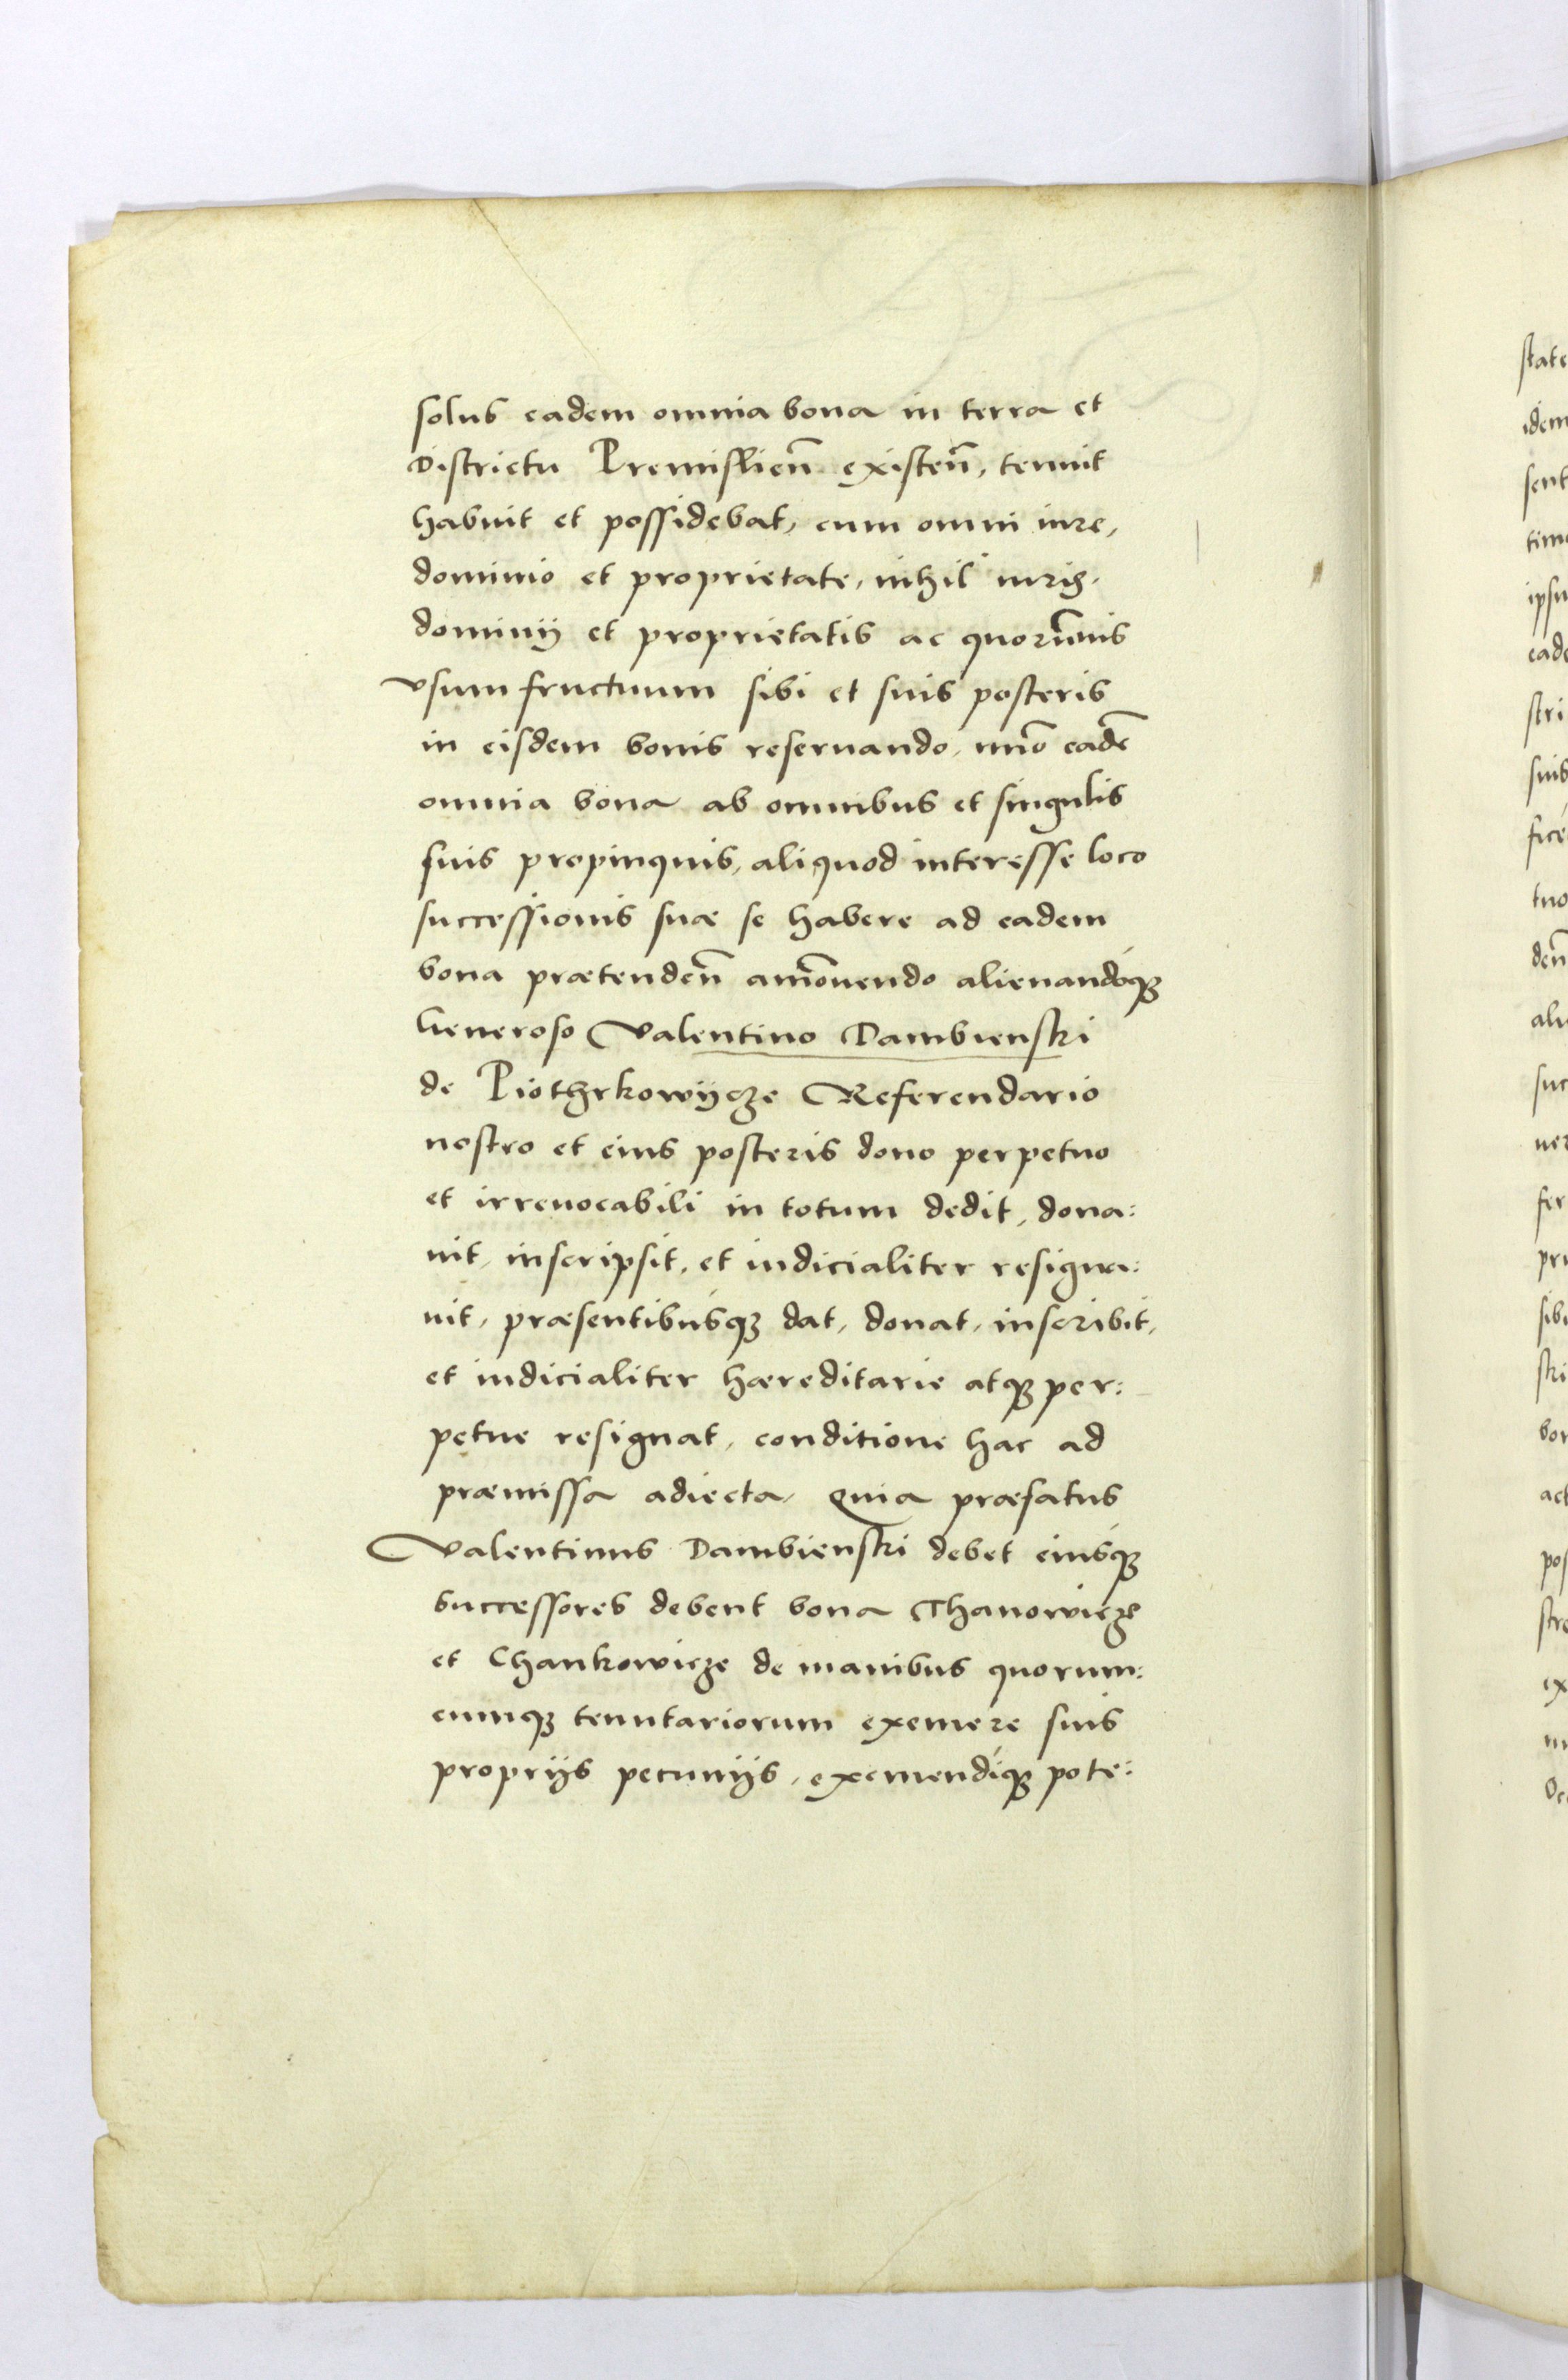 solus eadem omnia bona in terra et
Districtu Premislień existeń, tenuit
habuit et possidebat, cum omni iure,
dominio et proprietate, nihil iuris,
dominij et proprietatis ac
vsumfructuum sibi et suis posteris
in eisdem bonis reseruando, im̃o eadẽ
omnia bona ab omnibus et singulis
suis propinquis, aliquod interesse loco
successionis suæ se habere ad eadem
bona prætendeñ amouendo alienandóq3
Generoso Valentino Dambienski
de Piothrkowÿcze Referendario
nostro et eius posteris dono perpetuo
et irreuocabili in totum dedit, dona:
uit, inscripsit, et iudicialiter resigna:
uit, præsentibúsq3 dat, donat, inscribit,
et iudicialiter hæreditarie atq3 per:
petue resignat, conditione hac ad
præmissa adiecta, Quia præfatus
Valentinus Dambienski debet eiúsq3
successores debent bona Thanowicze
et Chankowicze de manibus quorum:
cunq3 tenutariorum exemere suis
proprijs pecunijs, exemendíq3 pote:
state
idem
sent
ipsu
stri
suis
alii
suc
fer
sibi
ski
bon
act
pos
stre
ex